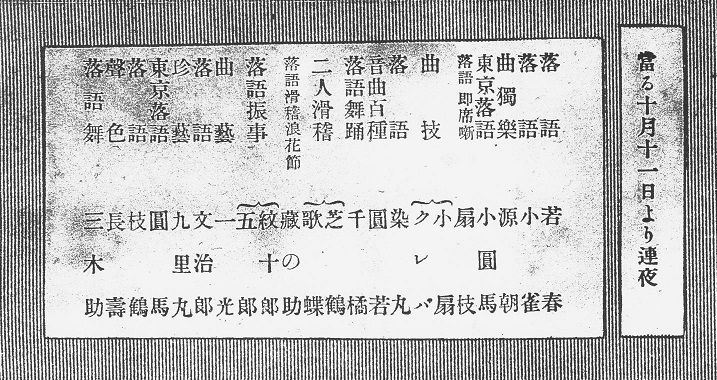 當る十月十一日より連夜
落語 若春
落語 小雀
曲獨樂 源朝
東京落語 小圓馬
落語即席噺 扇枝
曲技 小扇
クレバ
落語 染丸
音曲百種 圓若
落語舞踊 千橘
二人滑稽 芝鶴
歌蝶
落語滑稽浪花節 藏の助
落語振事 紋十郎
五郎
曲藝 一光
落語 文治郎
珍藝 九里丸
東京落語 圓馬
落語 枝鶴
聲色 長壽
落語舞 三木助